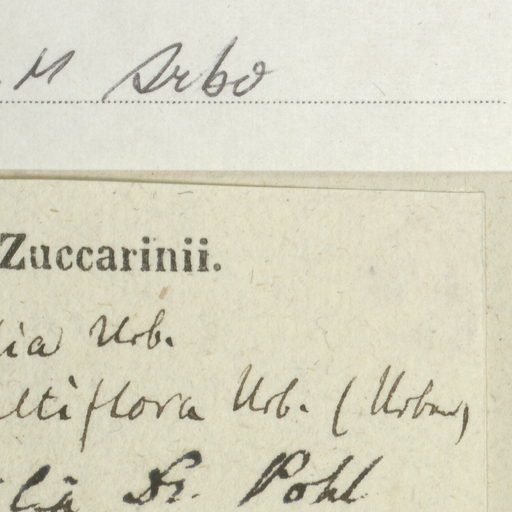 M Arbo
Zuccarinii.
lia Urb.
ultiflora Urb. (Urban)
Dr. Pohl